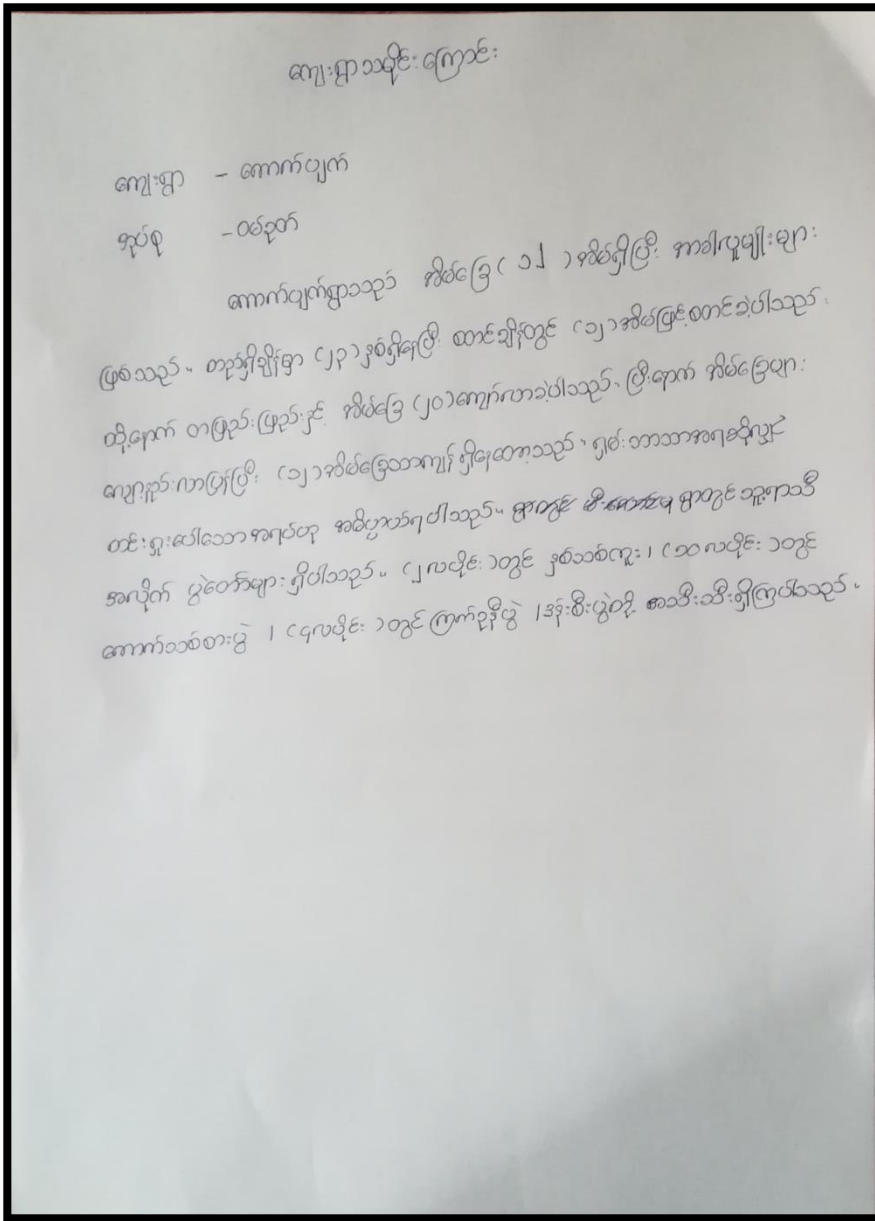 ကျေးရွာသမိုင်းကြောင်း
ကျေးရွာ - တောက်ပျက်
အုပ်စု - ဝမ်ဉတ်
တောက်ပျက်ရွာသည် အိမ်ခြေ (၁၂) အိမ်ရှိပြီး အာခါလူမျိုးများ
ဖြစ်သည်။ တည်ရှိချိန်မှာ (၂၃) နှစ်ရှိနေပြီး စတင်ချိန်တွင် (၁၂) အိမ်ဖြင့်စတင်ခဲ့ပါသည်။
ထို့နောက် တဖြည်းဖြည်းနှင့် အိမ်ခြေ (၂၀) ကျော်လာခဲ့ပါသည်။ ပြီးနောက် အိမ်ခြေများ
လျော့နည်းလာပြန်ပြီး (၁၂) အိမ်ခြေသာကျန်ရှိနေတော့သည်။ ရှမ်းဘာသာအရဆိုလျှင်
တင်းရှူးပေါသောအရပ်ဟု အဓိပ္ပာယ်ရပါသည်။ ရွာတွင် သူ့ရာသီ
အလိုက် ပွဲတော်များရှိပါသည်။ (၂လပိုင်း)တွင် နှစ်သစ်ကူး၊ (၁၀လပိုင်း)တွင်
ကောက်သစ်စားပွဲ၊ (၄လပိုင်း)တွင် ကြက်ဥနီပွဲ၊ ဒန်းစီးပွဲတို့ အသီးသီးရှိကြပါသည်။